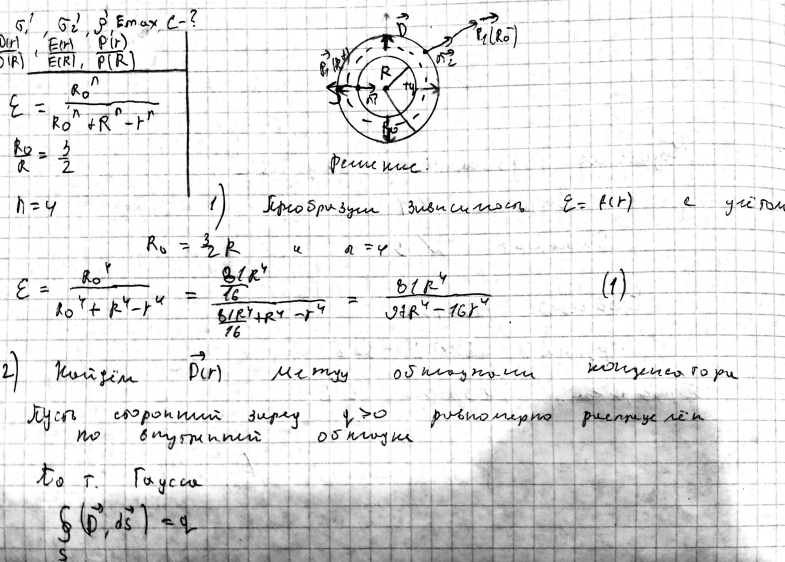 σ₁', σ₂', ρ', Emax, C - ?
D(r)/D(R), E(r)/E(R), P(r)/P(R)
ε = R₀ⁿ / (R₀ⁿ + Rⁿ - rⁿ)
R₀/R = 3/2
n = 4
D
R
R₀
Решение:
1) Преобразуем зависимость ε = f(r) с учётом
R₀ = 3/2 R и n = 4
ε = R₀⁴ / (R₀⁴ + R⁴ - r⁴) = (81R⁴/16) / (81R⁴/16 + R⁴ - r⁴) = 81R⁴ / (97R⁴ - 16r⁴) (1)
2) Найдём D(r) между обкладками конденсатора
Пусть сторонний заряд q>0 равномерно распределён
по внутренней обкладке
По т. Гаусса
∮ (D, dS) = q
S